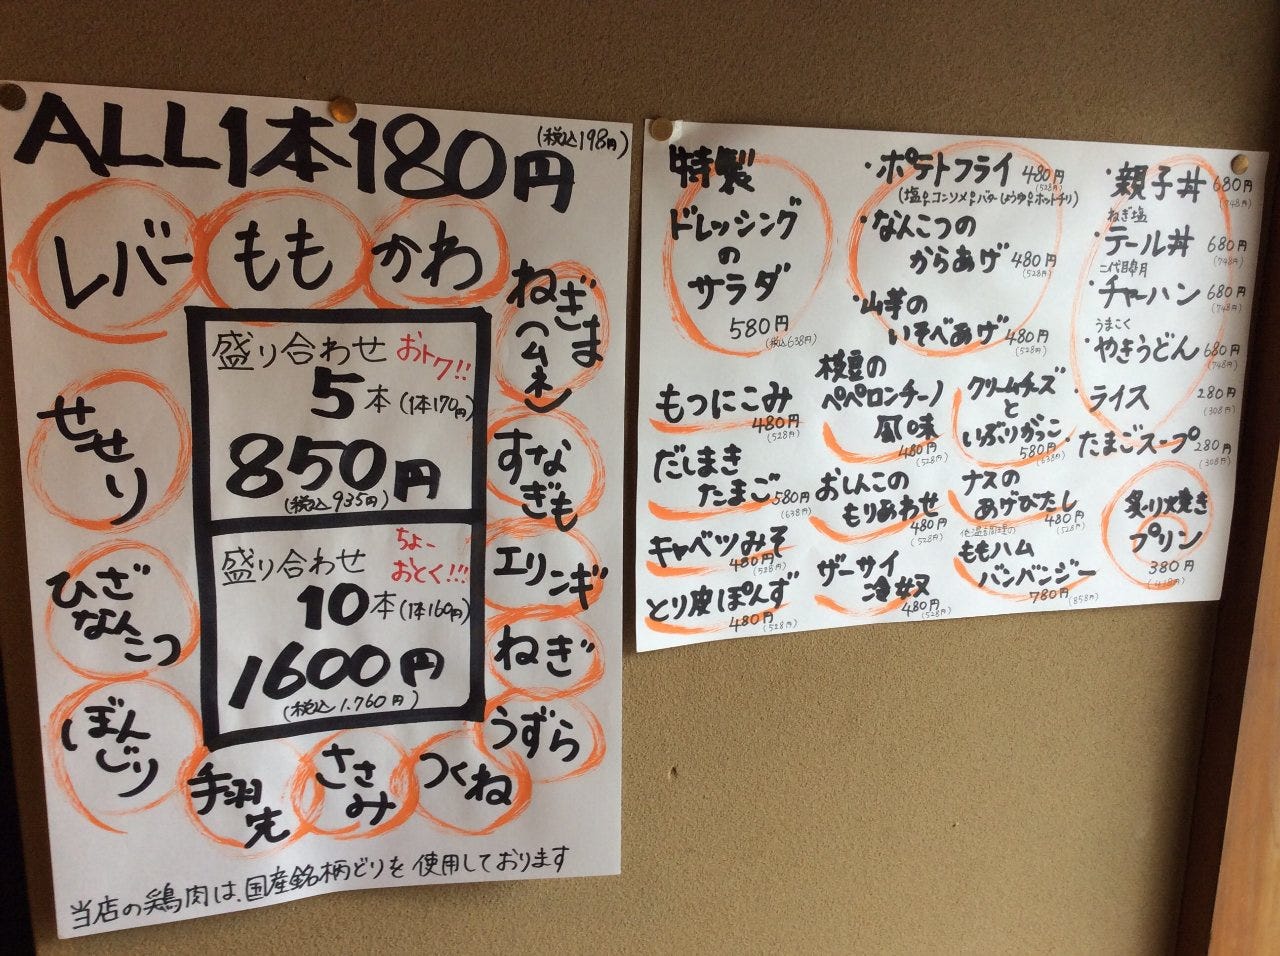 ALL1本180円
(税込198円)
レバー
もも
かわ
ねぎま
(ムネ)
せせり
すなぎも
盛り合わせ おトク!!
5本(1本170円)
850円
(税込935円)
盛り合わせ ちょーおとく!!!
10本(1本160円)
1600円
(税込1.760円)
エリンギ
ひざなんこつ
ねぎ
ぼんじり
うずら
手羽先
ささみ
つくね
当店の鶏肉は、国産銘柄どりを使用しております
特製
ドレッシング
の
サラダ
580円
(税込638円)
・ポテトフライ 480円
(528円)
・なんこつの
からあげ 480円
(528円)
・山芋の
いそべあげ 480円
(528円)
・親子丼 680円
(748円)
ねぎ塩
・テール丼 680円
(748円)
・チャーハン 680円
(748円)
うまこく
・やきうどん 680円
(748円)
・ライス 280円
(308円)
・たまごスープ 280円
(308円)
もつにこみ
480円
(528円)
枝豆の
ペペロンチーノ
風味
480円
(528円)
クリームチーズ
と
いぶりがっこ
580円
(638円)
だしまき
たまご 580円
(638円)
おしんこの
もりあわせ
480円
(528円)
ナスの
あげびたし
480円
(528円)
炙り焼き
プリン
380円
キャベツみそ
480円
(528円)
ザーサイ
冷奴
480円
(528円)
低温調理の
ももハム
バンバンジー
780円
(858円)
とり皮ぽんず
480円
(528円)